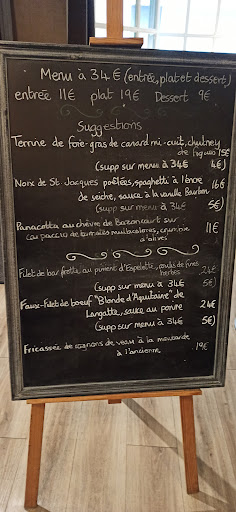 Menu à 34€ (entrée, plat et dessert)
entrée 11€ plat 19€ Dessert 9€
Suggestions
Terrine de foie-gras de canard mi-cuit, chutney
de figues 15€
(supp sur menu à 34€ 4€)
Noix de St. Jacques poêlées, spaghetti à l'encre 16€
de seiche, sauce à la vanille Bourbon
(supp sur menu à 34€ 5€)
Panacotta au chèvre de Buzancourt sur 11€
carpaccio de tomates multicolores, crumble
d'olives
Filet de bar frotté au piment d'Espelette, coulis de fines 24€
herbes
(supp sur menu à 34€ 5€)
Faux-Filet de boeuf "Blonde d'Aquitaine" de 24€
Langatte, sauce au poivre
(supp sur menu à 34€ 5€)
Fricassée de rognons de veau à la moutarde 19€
à l'ancienne